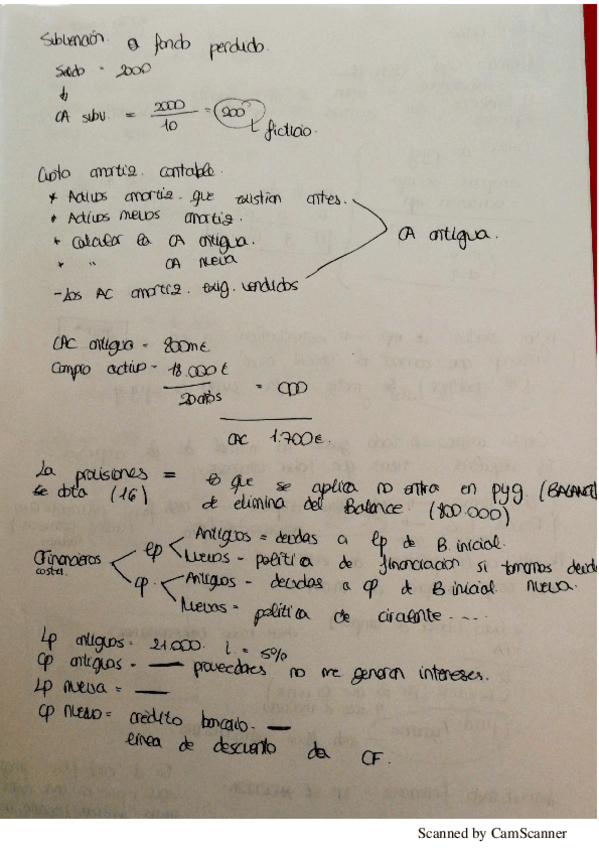 Subvención a fondo perdido.
Saldo = 2000
↓
CA subv. = 2000 / 10 = 200
↳ ficticio.
Cuota amortiz. contable.
* Activos amortiz. que existian antes.
* Activos nuevos amortiz.
+ Calcular la CA antigua.
+ " CA nueva
- Los AC amortiz. exig. vendidos
CA antigua.
CAC antigua = 800m€
Compro activo = 18.000€ / 20 años = 900
CAC 1.700€.
La provisiones = lo que se aplica no entra en pyg (BALANCE)
se dota (16) se elimina del Balance (100.000)
CFinancieros
costes
lp Antiguos = deudas a lp de B. inicial.
Nuevos - política de financiación si tomamos deuda
nueva.
cp. Antiguos - deudas a cp de B inicial
Nuevas = política de circulante ....
Lp antiguos = 21.000. i = 5%
Cp antiguos - — proveedores no me generan intereses.
Lp nueva = —
Cp nuevo = crédito bancario. —
línea de descuento da CF.
Scanned by CamScanner